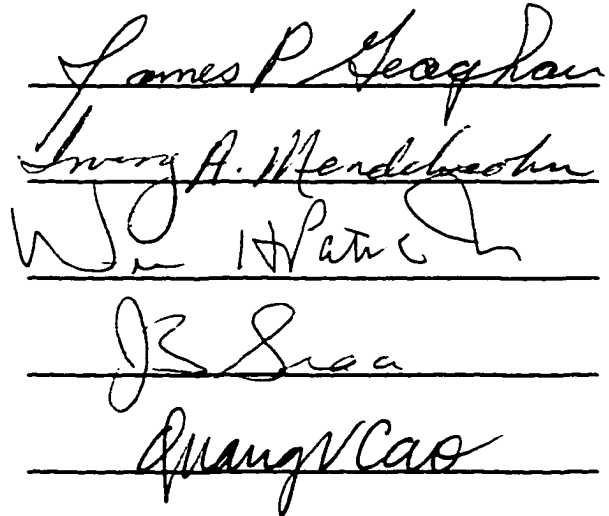 James P Geaghan
Irving A. Mendelssohn
Wm H Patrick Jr
JB
Quang V Cao